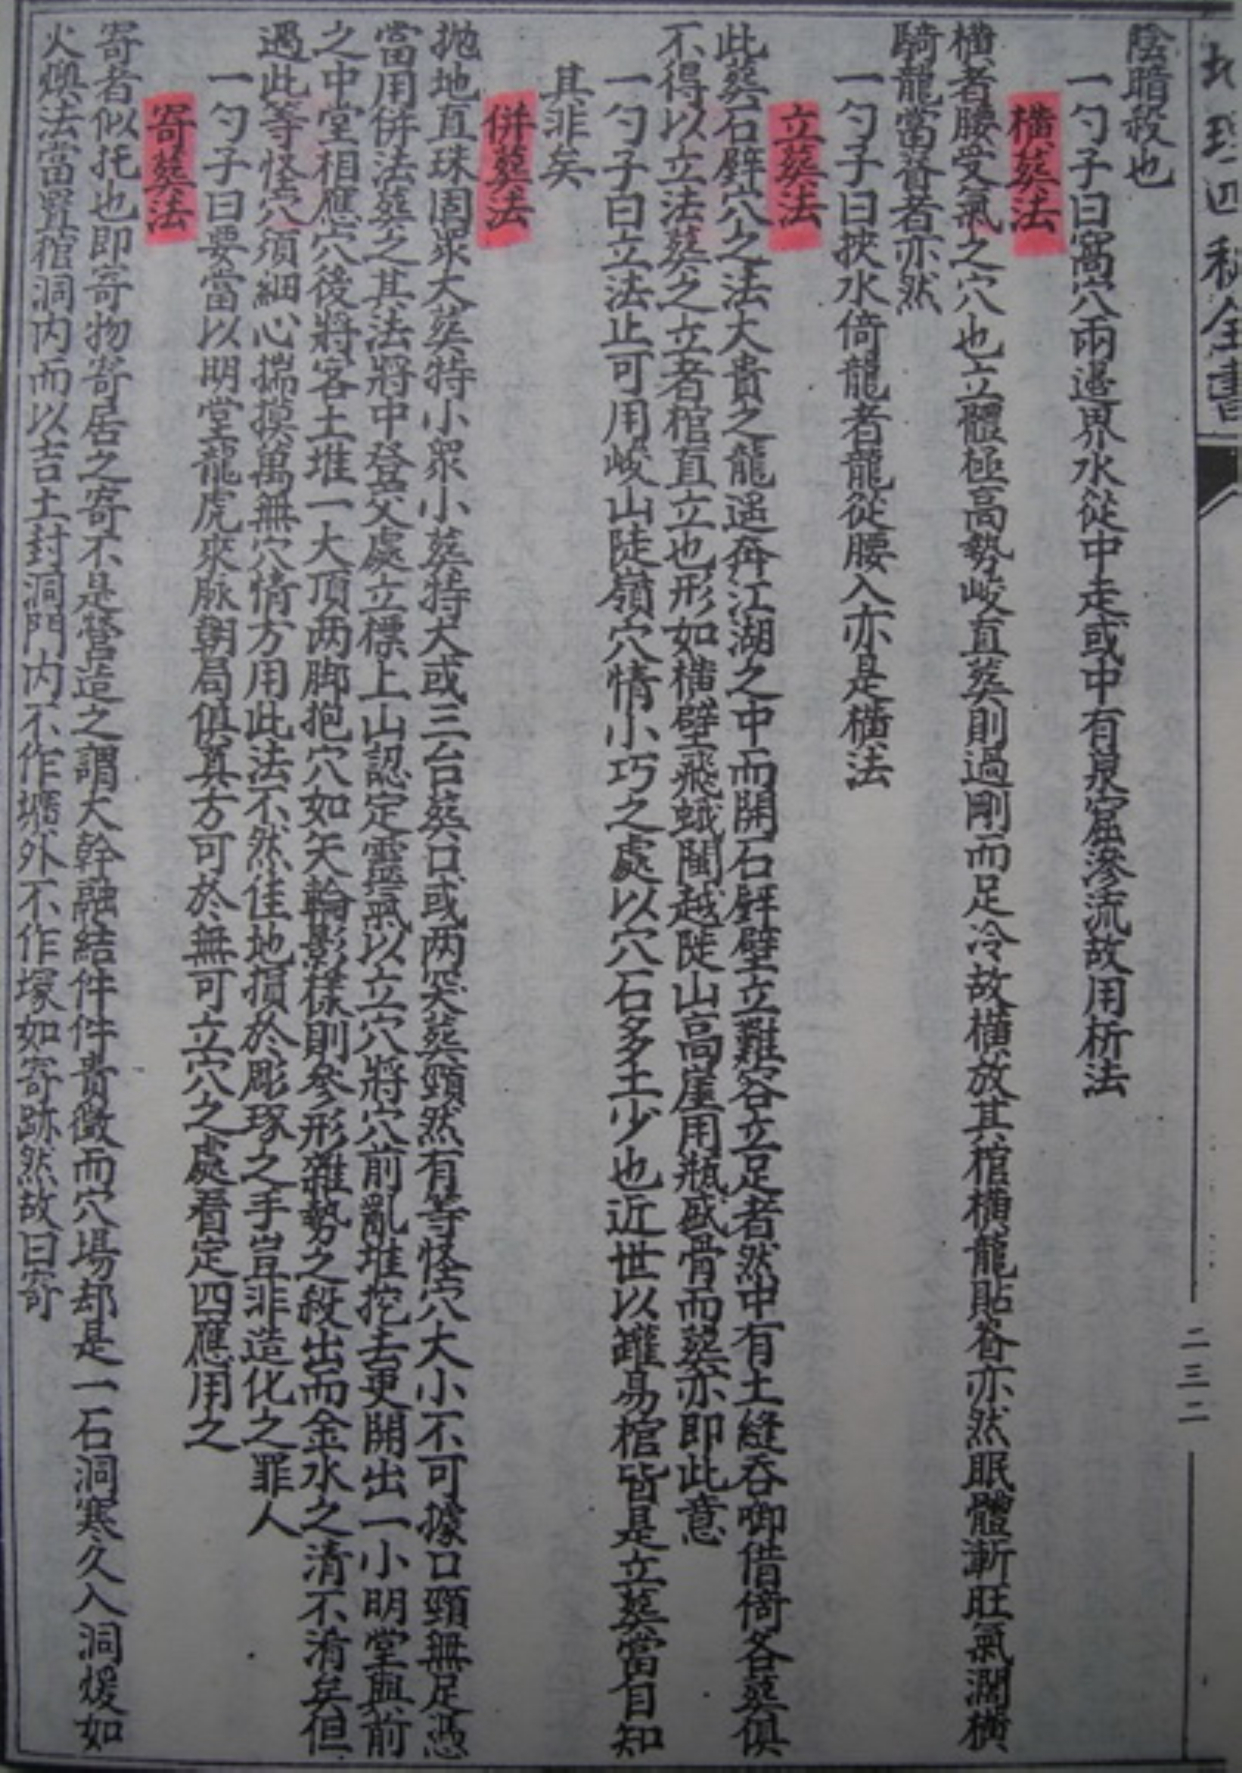 地理四秘全書
二三二
陰暗殺也
一勺子曰窩穴兩邊界水從中走或中有泉窟滲流故用析法
橫葬法
橫者腰受氣之穴也立體極高勢峻直葬則過剛而足冷故橫放其棺橫龍貼脊亦然眠體漸旺氣濶橫
騎龍當脊者亦然
一勺子曰挾水倚龍者龍從腰入亦是橫法
立葬法
此葬石壁穴之法大貴之龍遥奔江湖之中而開石壁壁立難容立足者然中有土縫吞啣借倚各葬俱
不得以立法葬之立者棺直立也形如橫壁飛蛾閩越陡山高崖用瓶盛骨而葬亦即此意
一勺子曰立法止可用峻山陡嶺穴情小巧之處以穴石多土少也近世以罐易棺皆是立葬當自知
其非矣
併葬法
拋地直珠固眾大葬特小眾小葬特大或三台葬口或两突葬頸然有等怪穴大小不可據口頸無足憑
當用併法葬之其法將中登父處立標上山認定靈氣以立穴將穴前亂堆挖去更開出一小明堂與前
之中堂相應穴後將客土堆一大頂两脚抱穴如天輪影樣則參形雜勢之殺出而金水之清不淆矣但
遇此等怪穴須細心揣摸萬無穴情方用此法不然佳地損於彫琢之手豈非造化之罪人
一勺子曰要當以明堂龍虎來脉朝局俱真方可於無可立穴之處看定四應用之
寄葬法
寄者似托也即寄物寄居之寄不是營造之謂大幹融結件件貴徵而穴場却是一石洞寒久入洞煖如
火煖法當置棺洞内而以吉土封洞門内不作壙外不作塚如寄跡然故曰寄